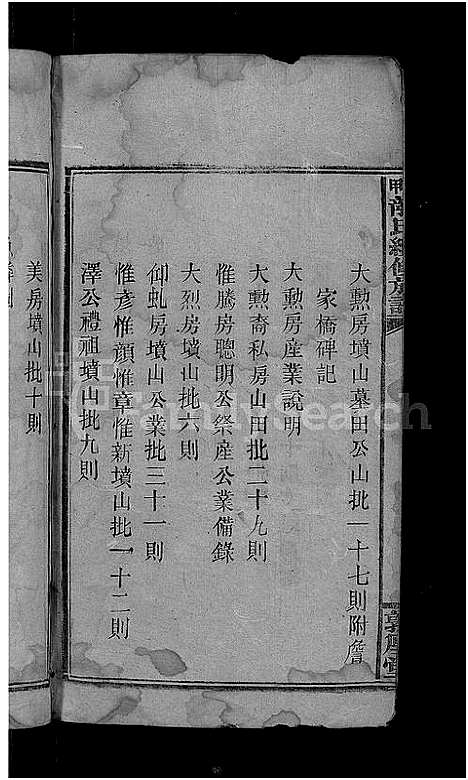 大勲房墳山墓田公山批一十七則附詹
家橋碑記
大勲房産業說明
大勲裔私房山田批二十九則
惟勝房聰明公祭産公業備錄
大烈房墳山批六則
仰虬房墳山公業批三十一則
惟彥惟顔惟章惟新墳山批一十二則
澤公禮祖墳山批九則
美房墳山批十則
FamilySearch